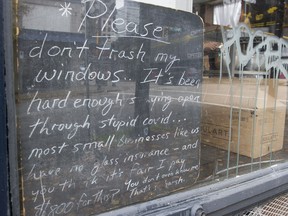 *Please
don't trash my
windows.. It's been
hard enough s ying open
through stupid covid...
most small businesses like us
have no glass insurance - and
you think it's fair I pay
$1800 for this? You don't even
That's